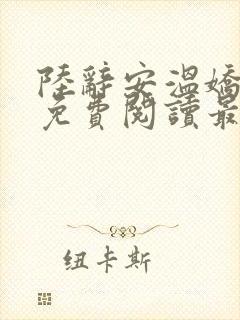 陸辭安溫嬌
免費閱讀最
纽卡斯